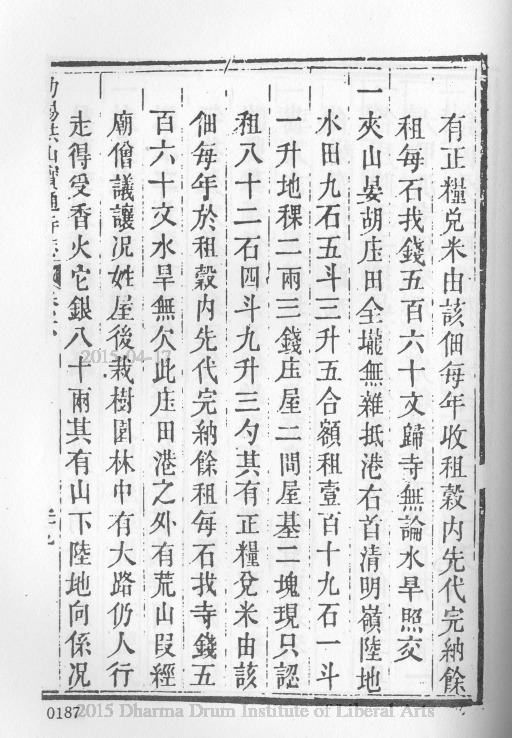 有正糧兌米由該佃每年收租穀内先代完納餘
租每石找錢五百六十文歸寺無論水旱照交
一夾山晏胡庄田全壠無雜抵港右首清明嶺陸地
水田九石五斗三升五合額租壹百十九石一斗
一升地稞二兩三錢庄屋二間屋基二塊現只認
租八十二石四斗九升三勺其有正糧兌米由該
佃每年於租穀内先代完納餘租每石找寺錢五
百六十文水旱無欠此庄田港之外有荒山叚經
廟僧議讓况姓屋後栽樹園林中有大路仍人行
走得受香火它銀八十兩其有山下陸地向係况
山寶通寺志
0187
2015-04-17
2015 Dharma Drum Institute of Liberal Arts